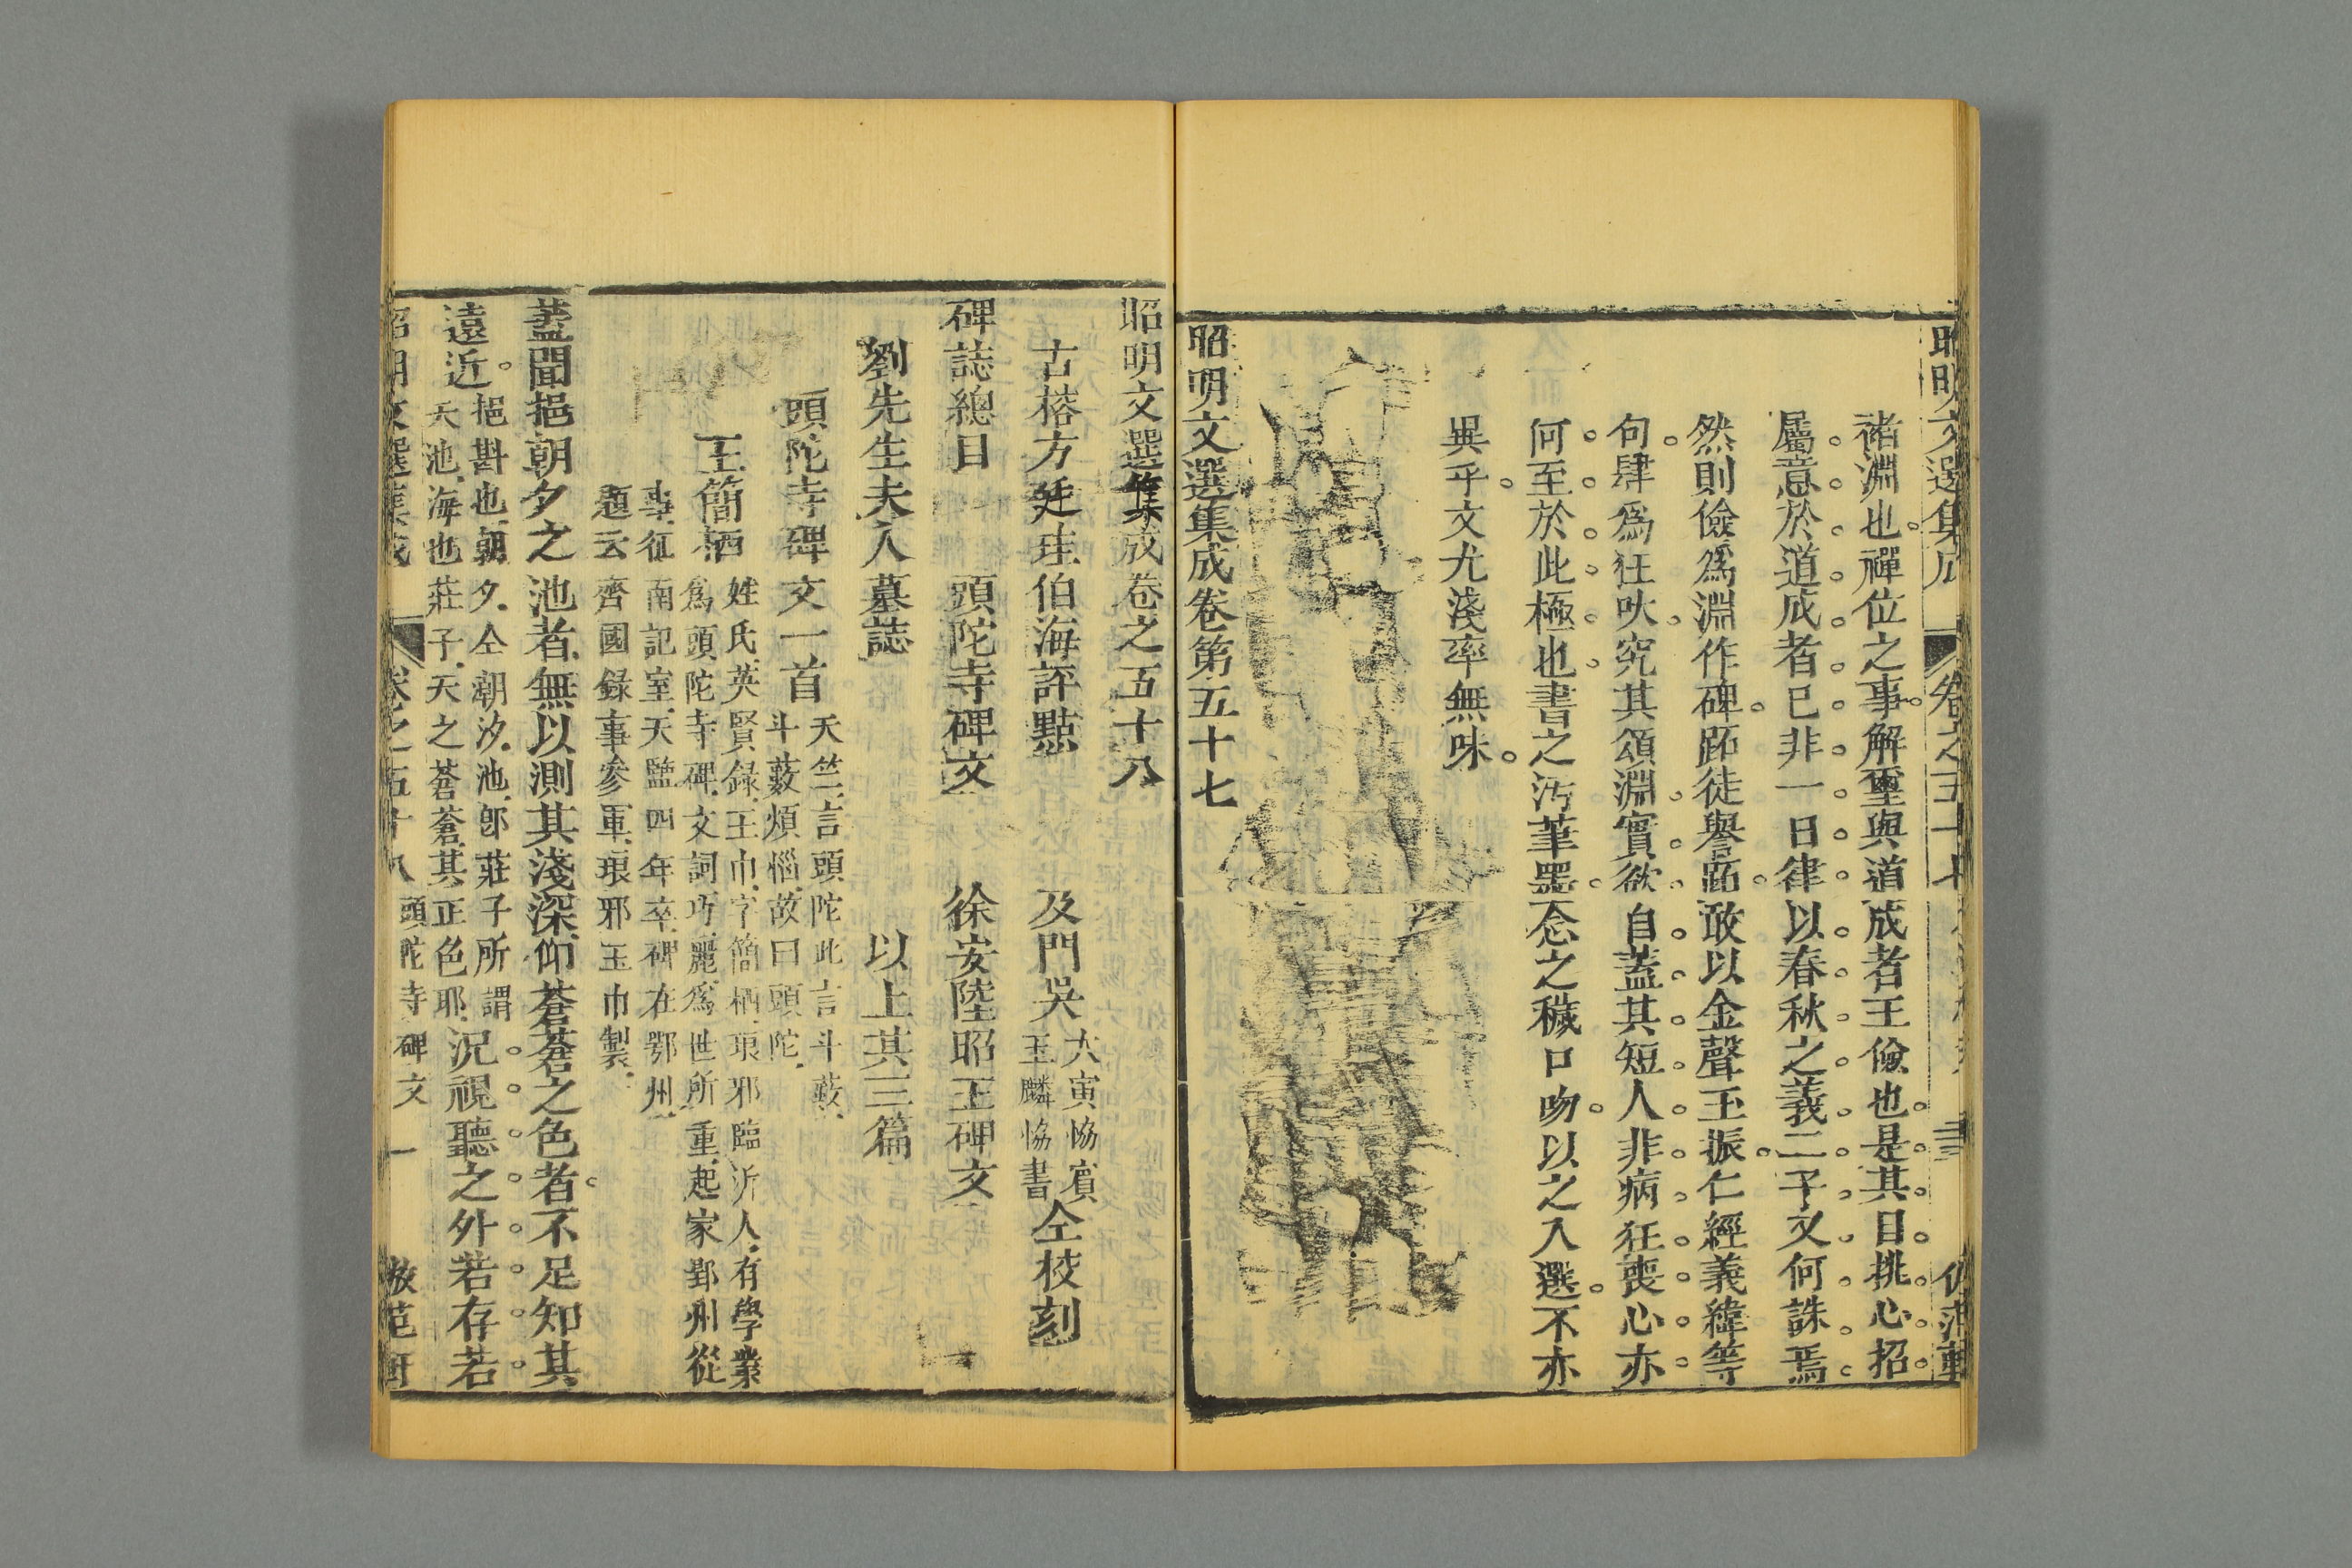 褚淵也禪位之事解璽與道成者王儉也是其目挑心招
屬意於道成者已非一日律以春秋之義二子又何誅焉
然則儉爲淵作碑跖徒譽跖敢以金聲玉振仁經義緯等
句肆爲狂吠究其頌淵實欲自蓋其短人非病狂喪心亦
何至於此極也書之汚筆墨念之穢口吻以之入選不亦
異乎文尤淺率無味
昭明文選集成卷第五十七
昭明文選集成卷之五十八
古榕方廷珪伯海評點 及門吳大寅協賓玉麟恊書仝校刻
碑誌總目 頭陀寺碑文 徐安陸昭王碑文
劉先生夫人墓誌 以上其三篇
頭陀寺碑文一首天竺言頭陀此言斗藪
斗藪煩惱故曰頭陀
王簡栖姓氏英賢録王巾字簡栖琅邪臨沂人有學業
爲頭陀寺碑文詞巧麗爲世所重起家郢州從
事征南記室天監四年卒碑在鄂州
題云齊國録事參軍琅邪王巾製
蓋聞挹朝夕之池者無以測其淺深仰蒼蒼之色者不足知其
遠近挹斟也朝夕仝朝汐池卽莊子所謂
天池海也莊子天之蒼蒼其正色耶況視聽之外若存若
昭明文選集成 卷之五十八 頭陀寺碑文 一 倣范軒